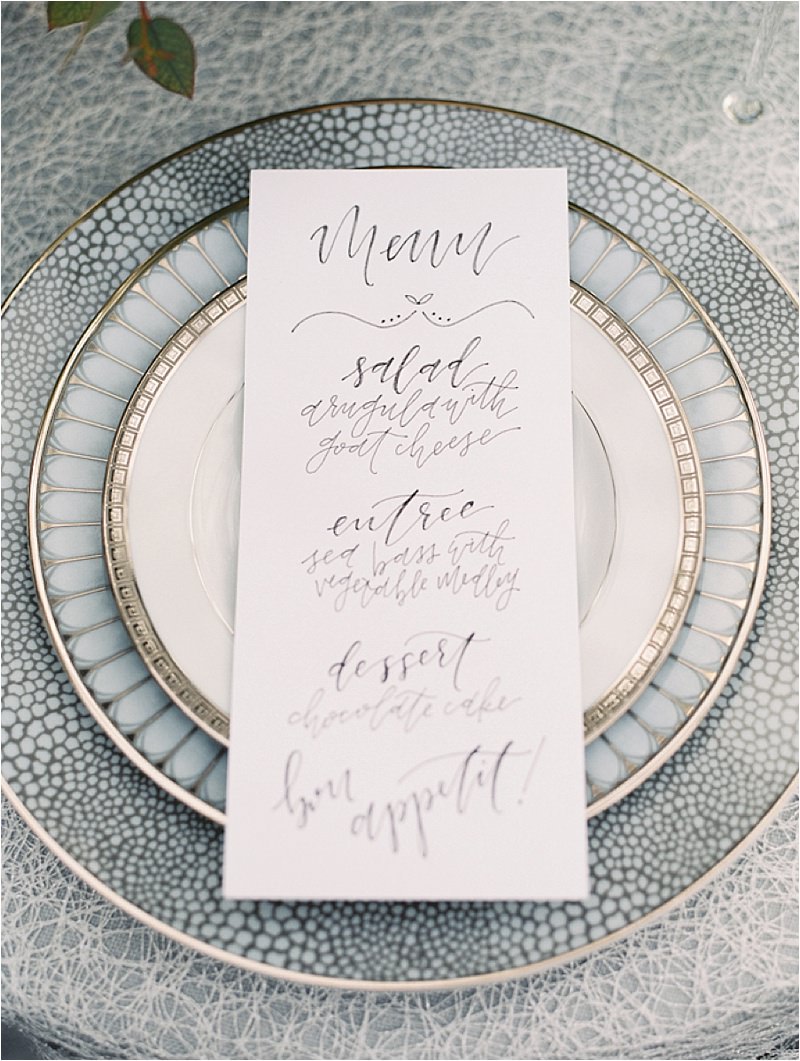 Menu
salad
arugula with
goat cheese
entree
sea bass with
vegetable medley
dessert
chocolate cake
bon
appetit!